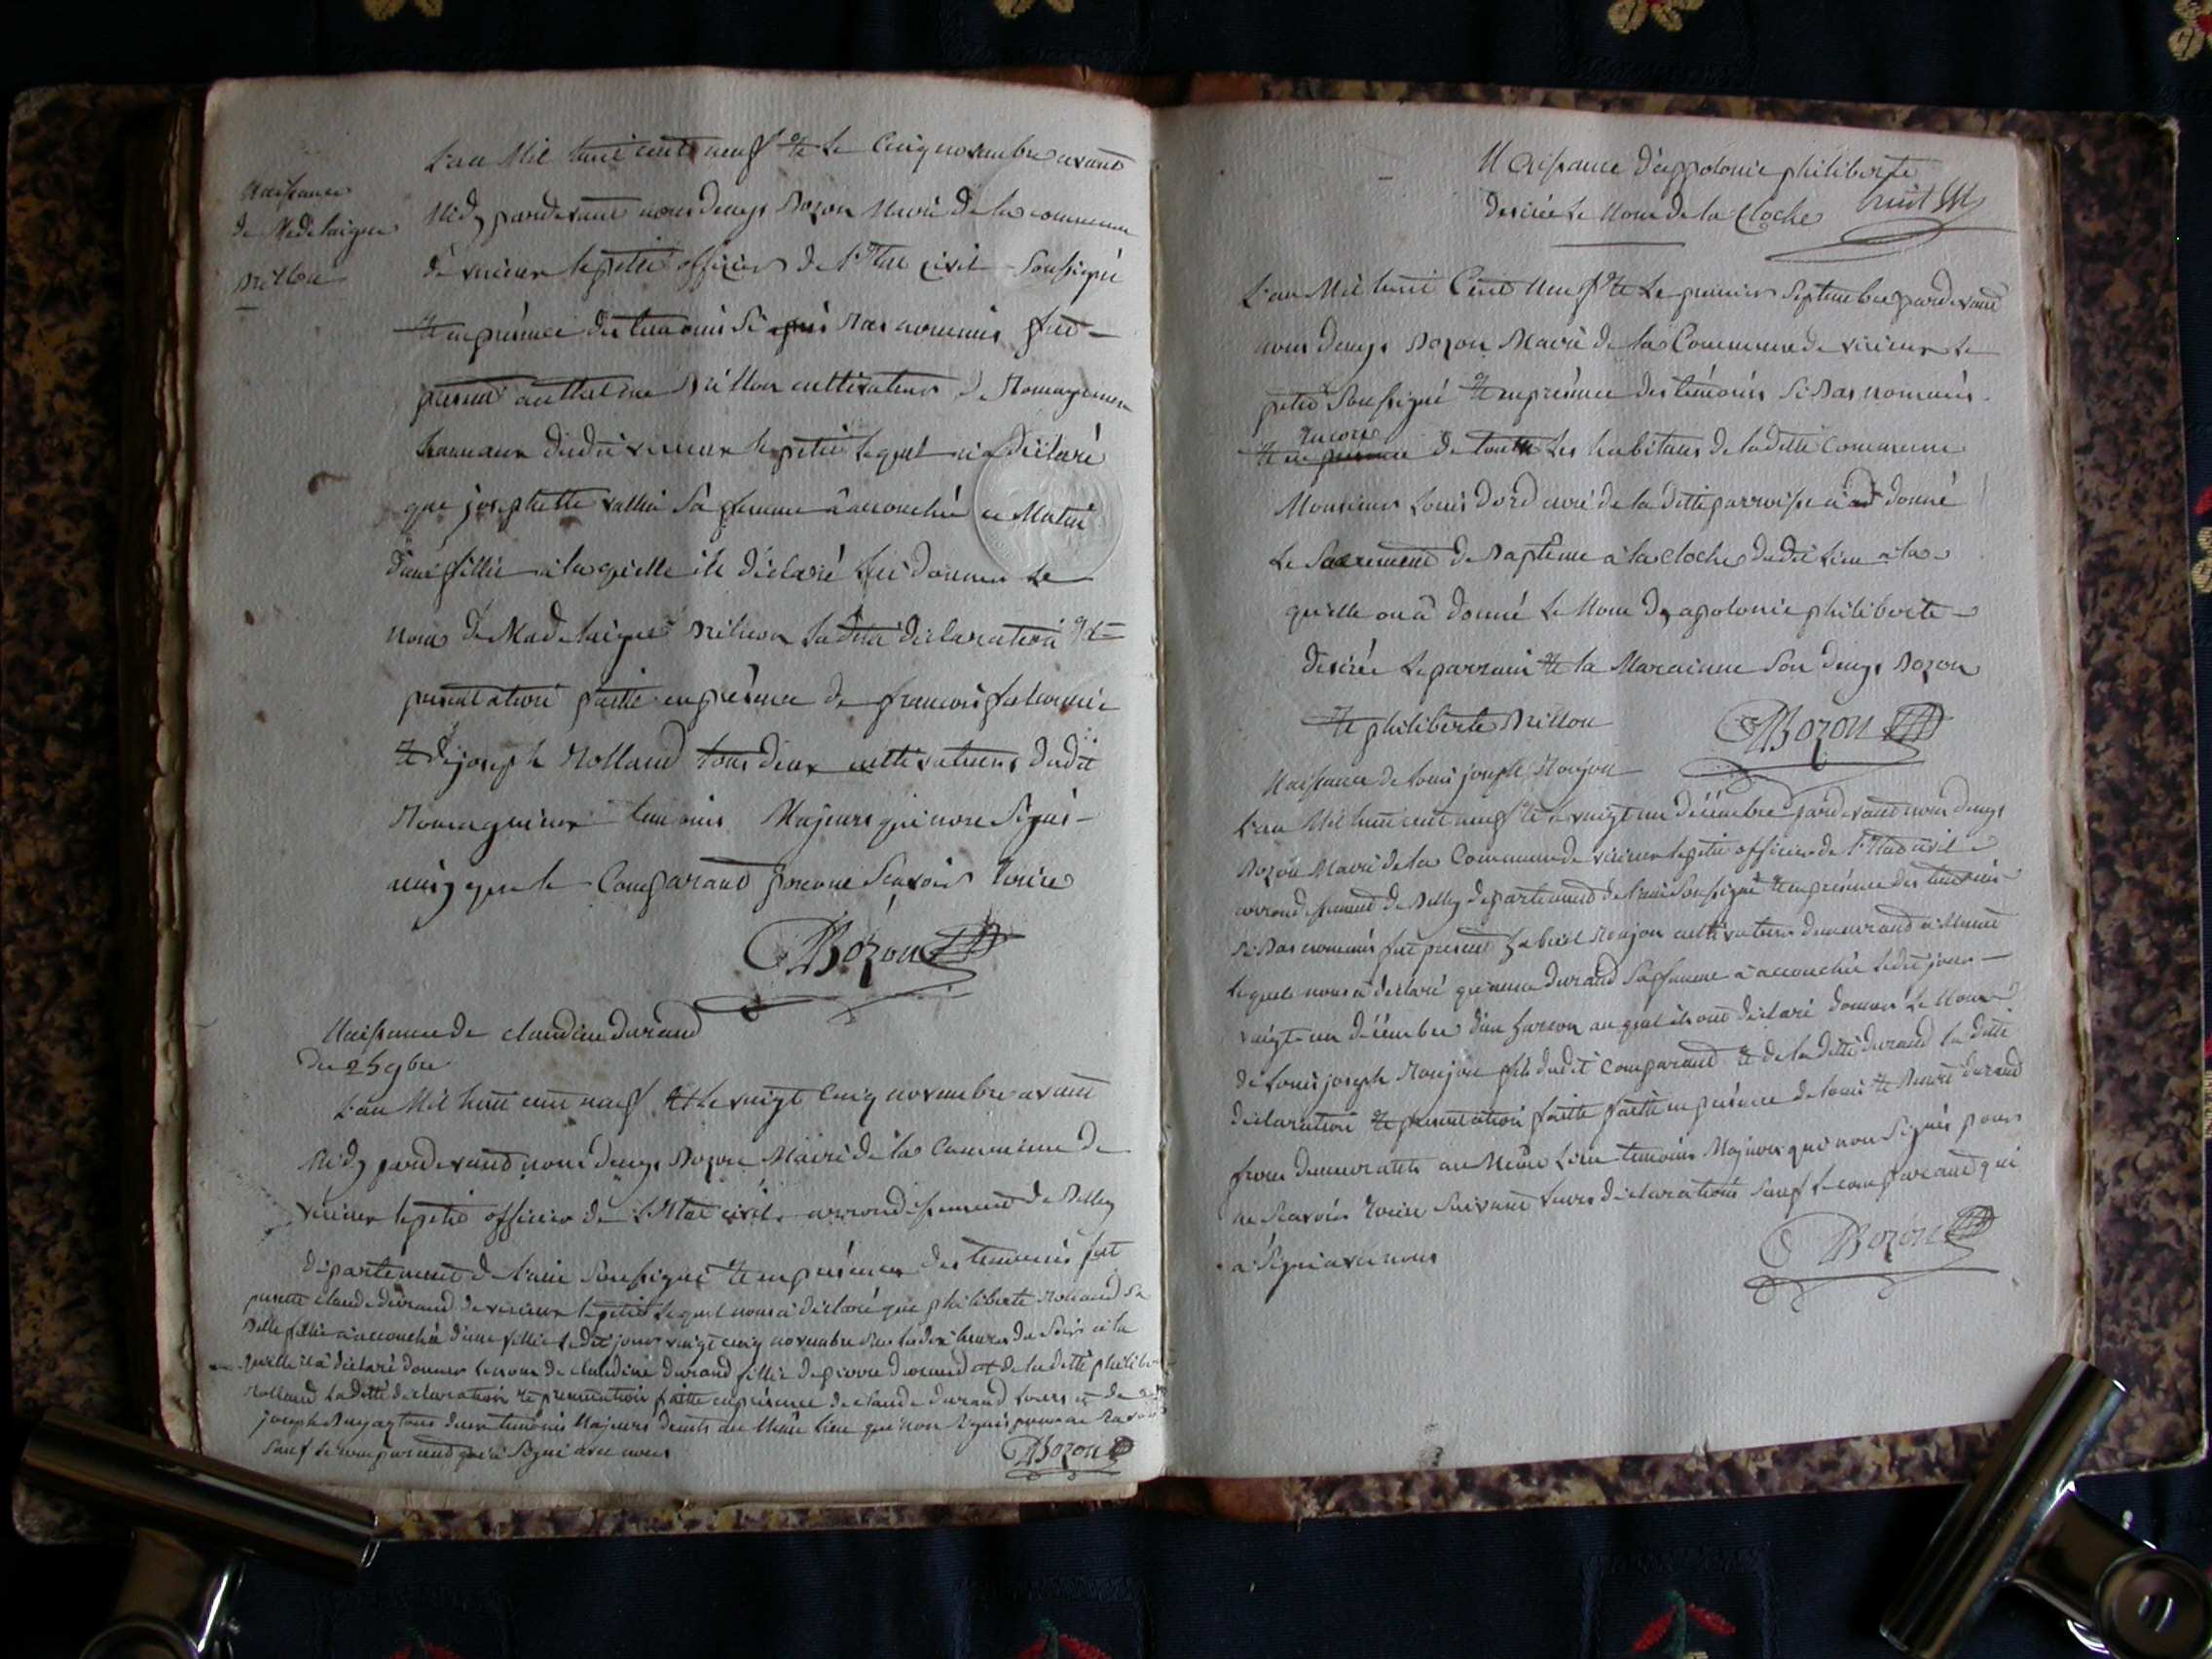 Naissance
de Madelaigne
Brillon
L'an Mil huit cent neuf et le Cinq novembre avant
Midy pardevant nous denys Bozon Maire de la commune
de virieux le petit officier de l'Etat civil Soussigné
et en présence des temoins Si Bas nommés fut
present Brillon cultivateur de Romagnieux
hameaux dudit virieux le petit lequel a déclaré
que josephette sa femme à accouchée ce Matin
d'une fillie à laquelle il déclaré lui donner Le
nom de Madelaigne Brillion la ditte déclaration et
presentation faitte en présence de francois
et de joseph Rolland tous deux cultivateurs dudit
Romagnieux temoins Majeurs qui non Signés
ainsy que le Comparant pour ne Scavoir Ecrire
Bozon
Naissance de claudine durand
Du 25 9bre
L'an Mil huit cent neuf et le vingt Cinq novembre avant
Midy pardevant nous denys Bozon Maire de la Commune de
virieux le petit officier de L'Etat civil arrondissement de Belley
département de l'ain Soussigné et en présence des temoins fut
present claude durand de virieux le petit Lequel nous à déclaré que philiberte Rolland Sa
Belle fillie à accouchée d'une fillie Ledit jour vingt cinq novembre Sur les dix heures du Soir à la
quelle il à déclaré donner le nom de claudine durand fillie de pierre durand et de la ditte philibe
Rolland La ditte déclaration et presentation faitte en présence de claude durand et de
joseph tous deux temoins Majeurs au Même lieu qui non Signés pour ne Scavoir
Sauf le comparant qui à Signé avec nous
Bozon
Naissance d'appolonie philiberte
desirée Le Nom de la Cloche
L'an Mil huit Cent Neuf et Le premier Septembre pardevant
nous denys Bozon Maire de la Commune de virieux Le
petit Soussigné et en présence des témoins Si Bas nommés
encore
et en présence de toute Les habitans de la ditte Commune
Monsieur Louis Dord curé de la ditte parroisse à donné
Le Sacrement de Baptême à la cloche dudit Lieu à la
quelle on à donné Le Nom d'apolonie philiberte
desirée Le parrain et la Maraine Son denys Bozon
et philiberte Brillon
Bozon
Naissance de Louis joseph Monjon
L'an Mil huit cent neuf et le vingt un décembre pardevant nous denys
Bozon Maire de la Commune de virieux le petit officier de l'Etat civil
arrondissement de Belley département de l'ain Soussigné et en présence des temoins
Si Bas nommés fut present Gabriel Monjon cultivateur demeurant à
Lequel nous à déclaré qu'anne durand Sa femme à accouchée Ledit jour
vingt un décembre d'un Garcon au quel ils ont déclaré donner Le Nom
de Louis joseph Monjon fils dudit comparant et de la ditte durand La ditte
déclaration et presentation faitte faitte en présence de Louis et durand
freres demeurants au Même Lieu temoins Majeurs qui non Signés pour
ne Scavoir Ecrire Suivant leurs déclarations Sauf le comparant qui
à Signé avec nous
Bozon